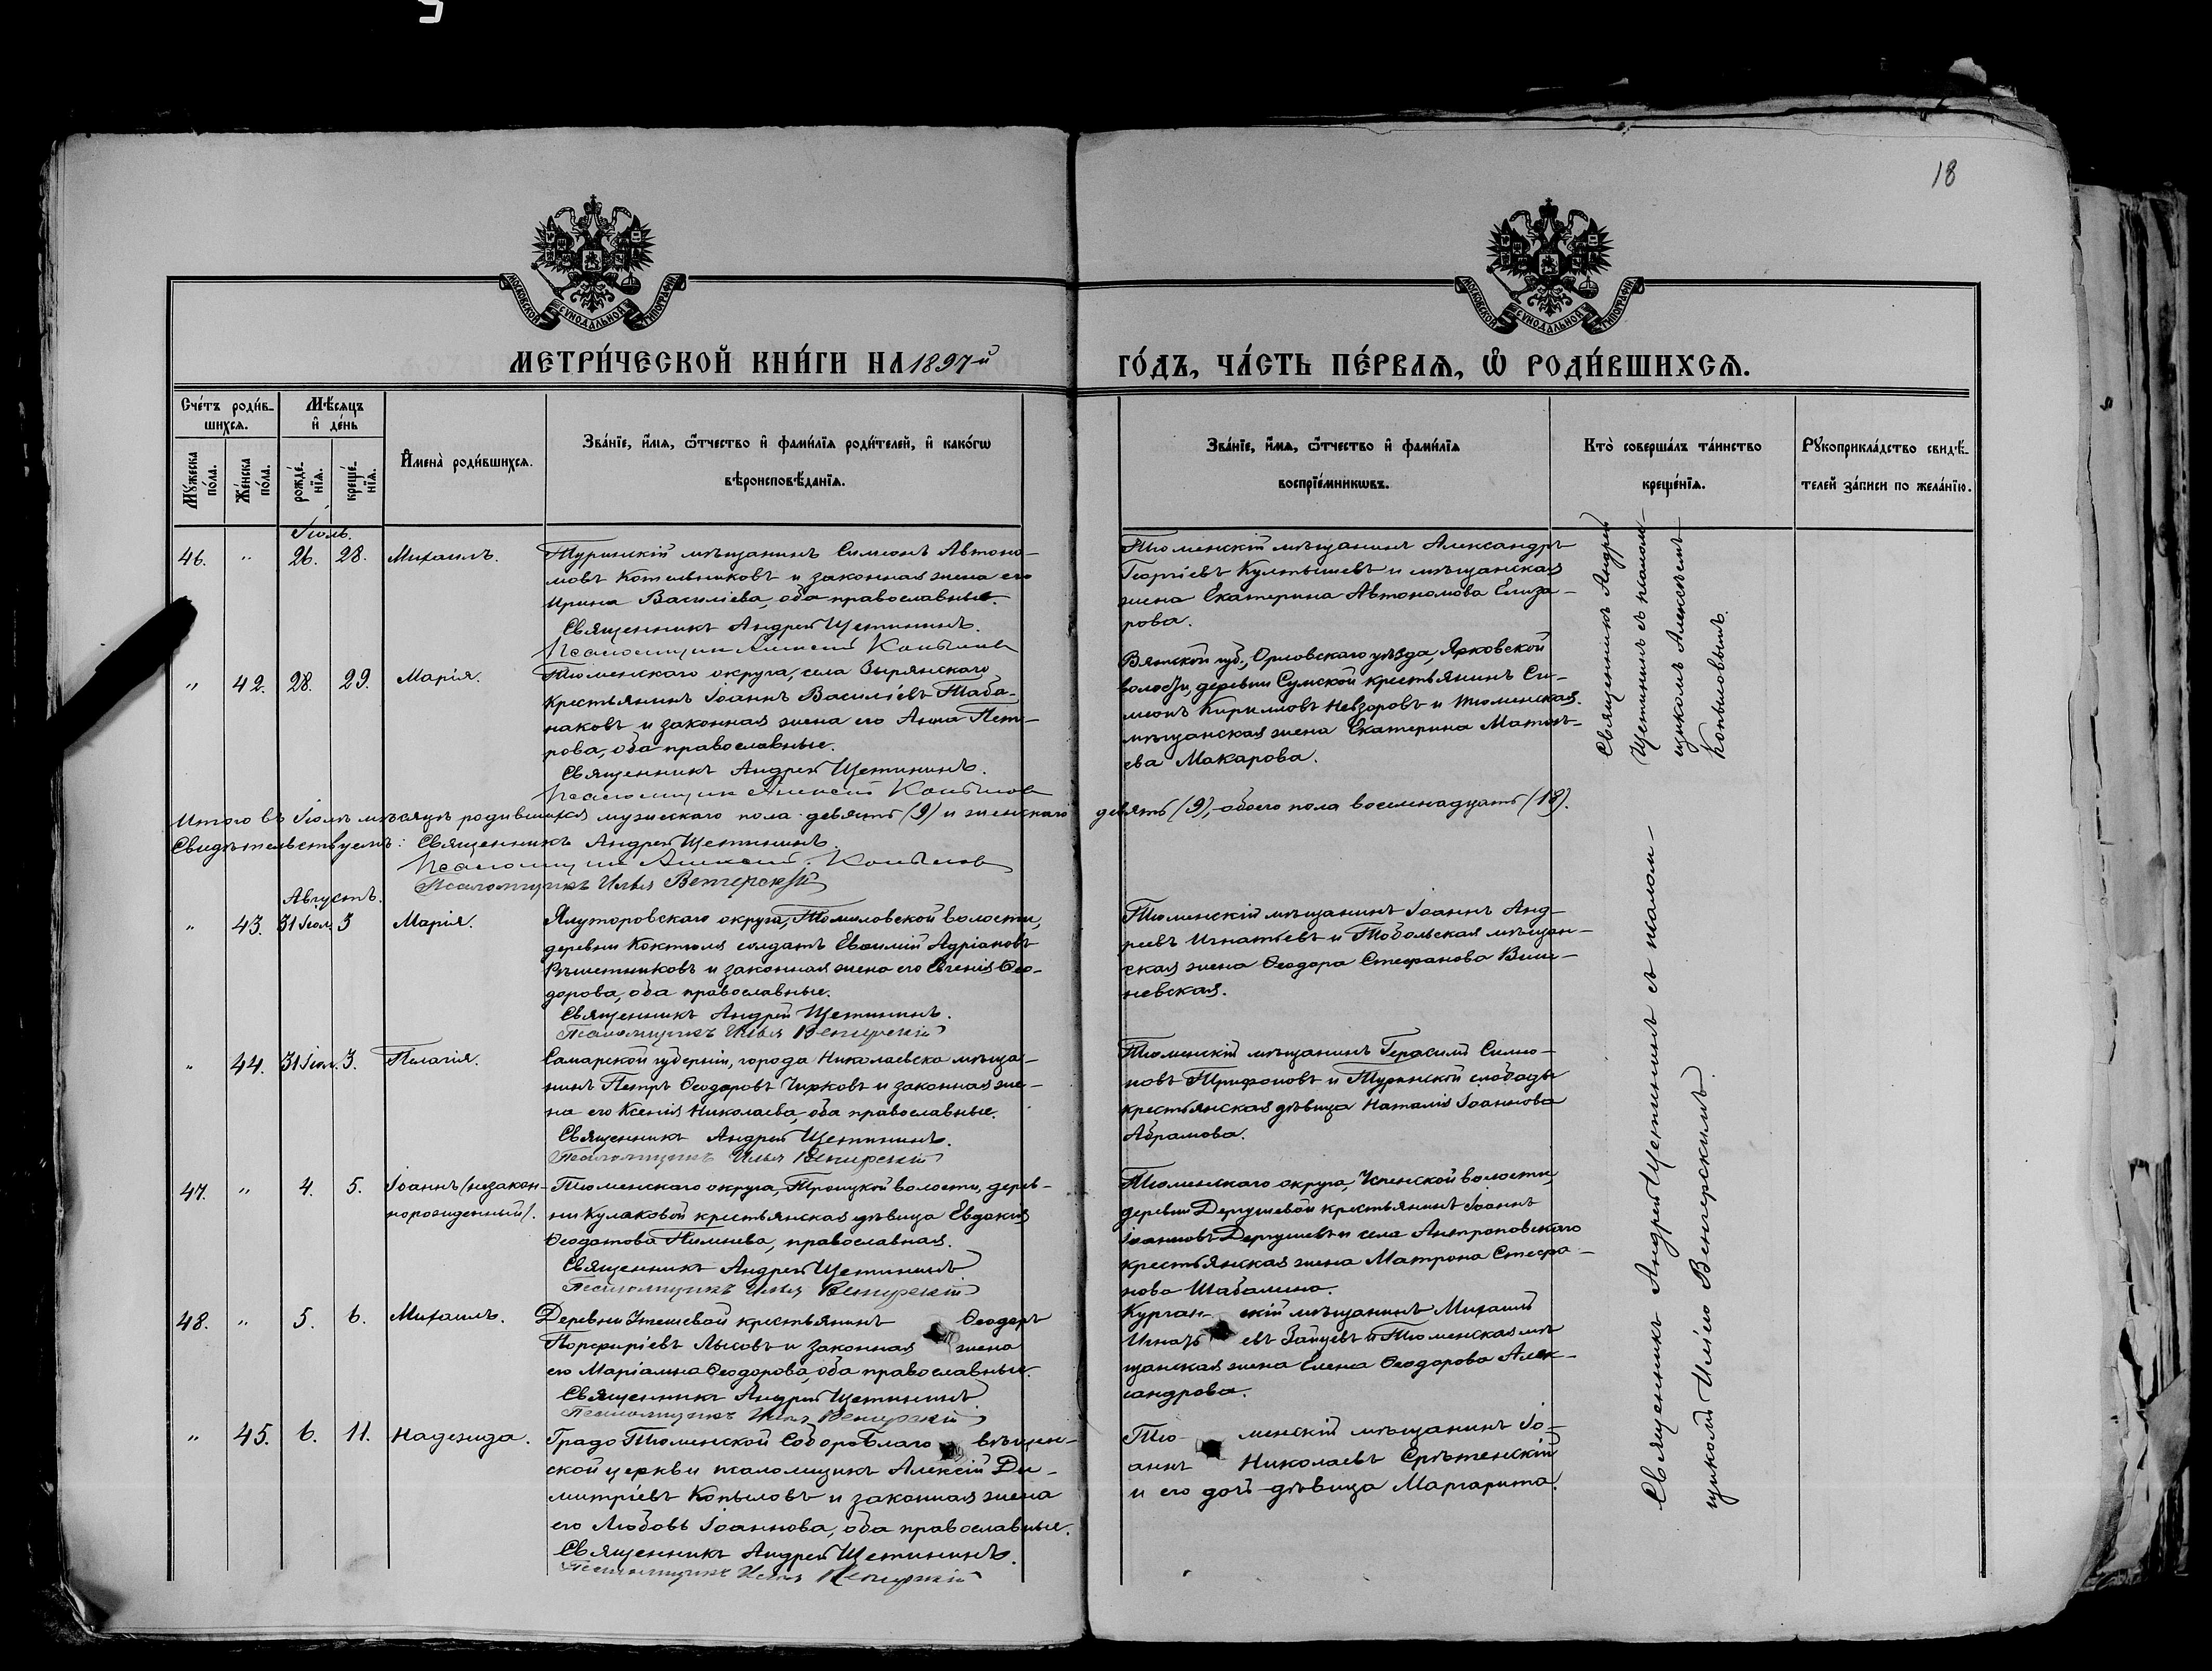 18
МОСКОВСКОЙ СѴНОДАЛЬНОЙ ТИПОГРАФІИ
МОСКОВСКОЙ СѴНОДАЛЬНОЙ ТИПОГРАФІИ
МЕТРИ́ЧЕСКОЙ КНИ́ГИ НА 1897й
ГО́ДЪ, ЧА́СТЬ ПЕ́РВАѦ, Ѡ҆ РОДИ́ВШИХСѦ.
Сче́тъ роди́в-
шихсѧ.
Мꙋ́жеска по́ла.
Же́нска по́ла.
Мѣ́сѧцъ
и҆ де́нь
рожде́-
нїѧ.
креще́-
нїѧ.
И҆мена̀ роди́вшихсѧ.
Зва́нїе, и҆́мѧ, ѻ҆́тчество и҆ фами́лїѧ роди́телей, и҆ како́гѡ
вѣроисповѣ́данїѧ.
Зва́нїе, и҆́мѧ, ѻ҆́тчество и҆ фами́лїѧ
воспрїе́мникѡвъ.
Кто̀ соверша́лъ та́инство
креще́нїѧ.
Рꙋкоприкла́дство свидѣ́-
телей за́писи по жела́нїю.
Іюль.
46. " 26. 28. Михаилъ.
Туринскій мѣщанинъ Симеонъ Автоно-
мовъ Котельниковъ и законная жена его
Ирина Василіева, оба православные.
Священникъ Андрей Щетининъ.
Псаломщикъ Алексій Копыловъ
Тюменскій мѣщанинъ Александръ
Георгіевъ Култышевъ и мѣщанская
жена Екатерина Автономова Елиза-
рова.
" 42. 28. 29. Марія.
Тюменскаго округа, села Зырянскаго
крестьянинъ Іоаннъ Василіевъ Таба-
наковъ и законная жена его Анна Пет-
рова, оба православные.
Священникъ Андрей Щетининъ.
Псаломщикъ Алексій Копыловъ
Вятской губ., Орловскаго уѣзда, Ярковской
волости, деревни Сумской крестьянинъ Си-
меонъ Кирилловъ Невзоровъ и тюменская
мѣщанская жена Екатерина Матвѣ-
ева Макарова.
Священникъ Андрей
Щетининъ съ псалом-
щикомъ Алексѣемъ
Копыловымъ.
Итого въ Іюлѣ мѣсяцѣ родившихся мужескаго пола девять (9) и женскаго девять (9), обоего пола восемнадцать (18).
Свидѣтельствуемъ: Священникъ Андрей Щетининъ.
Псаломщикъ Алексій Копыловъ
Псаломщикъ Илья Венгерскій
Августъ.
" 43. 31 Іюл. 3 Марія.
Ялуторовскаго округа, Томиловской волости,
деревни Коктюля солдатъ Евсилій Адріановъ
Рѣшетниковъ и законная жена его Евгенія Ѳео-
дорова, оба православные.
Священникъ Андрей Щетининъ.
Псаломщикъ Илья Венгерскій
Тюменскій мѣщанинъ Іоаннъ Анд-
реевъ Игнатьевъ и Тобольская мѣщан-
ская жена Ѳеодора Стефанова Виш-
невская.
" 44. 31 Іюл. 3. Пелагія.
Самарской губерніи, города Николаевска мѣща-
нинъ Петръ Ѳеодоровъ Чирковъ и законная же-
на его Ксенія Николаева, оба православные.
Священникъ Андрей Щетининъ.
Псаломщикъ Илья Венгерскій
Тюменскій мѣщанинъ Герасимъ Симо-
новъ Трифоновъ и Туринской слободы
крестьянская дѣвица Наталія Іоаннова
Абрамова.
47. " 4. 5. Іоаннъ (незакон-
норожденный).
Тюменскаго округа, Троицкой волости, дерев-
ни Кулаковой крестьянская дѣвица Евдокія
Ѳеодотова Пимнева, православная.
Священникъ Андрей Щетининъ
Псаломщикъ Илья Венгерскій
Тюменскаго округа, Успенской волости,
деревни Дергушевой крестьянинъ Іоаннъ
Іоанновъ Дергушевъ и села Антроповскаго
крестьянская жена Матрона Стефа-
нова Шабалина.
48. " 5. 6. Михаилъ.
Деревни Утешевой крестьянинъ Ѳеодоръ
Порфиріевъ Лысовъ и законная жена
его Маріамна Ѳеодорова, оба православные.
Священникъ Андрей Щетининъ
Псаломщикъ Илья Венгерскій
Курганскій мѣщанинъ Михаилъ
Игнатьевъ Зайцевъ и Тюменская мѣ-
щанская жена Елена Ѳеодорова Алек-
сандрова.
" 45. 6. 11. Надежда.
Градо Тюменской Соборо Благовѣщен-
ской церкви псаломщикъ Алексій Ди-
митріевъ Копыловъ и законная жена
его Любовь Іоаннова, оба православные.
Священникъ Андрей Щетининъ.
Псаломщикъ Илья Венгерскій
Тюменскій мѣщанинъ Іо-
аннъ Николаевъ Срѣтенскій
и его дочь-дѣвица Маргарита.
Священникъ Андрей Щетининъ съ псалом-
щикомъ Иліею Венгерскимъ.